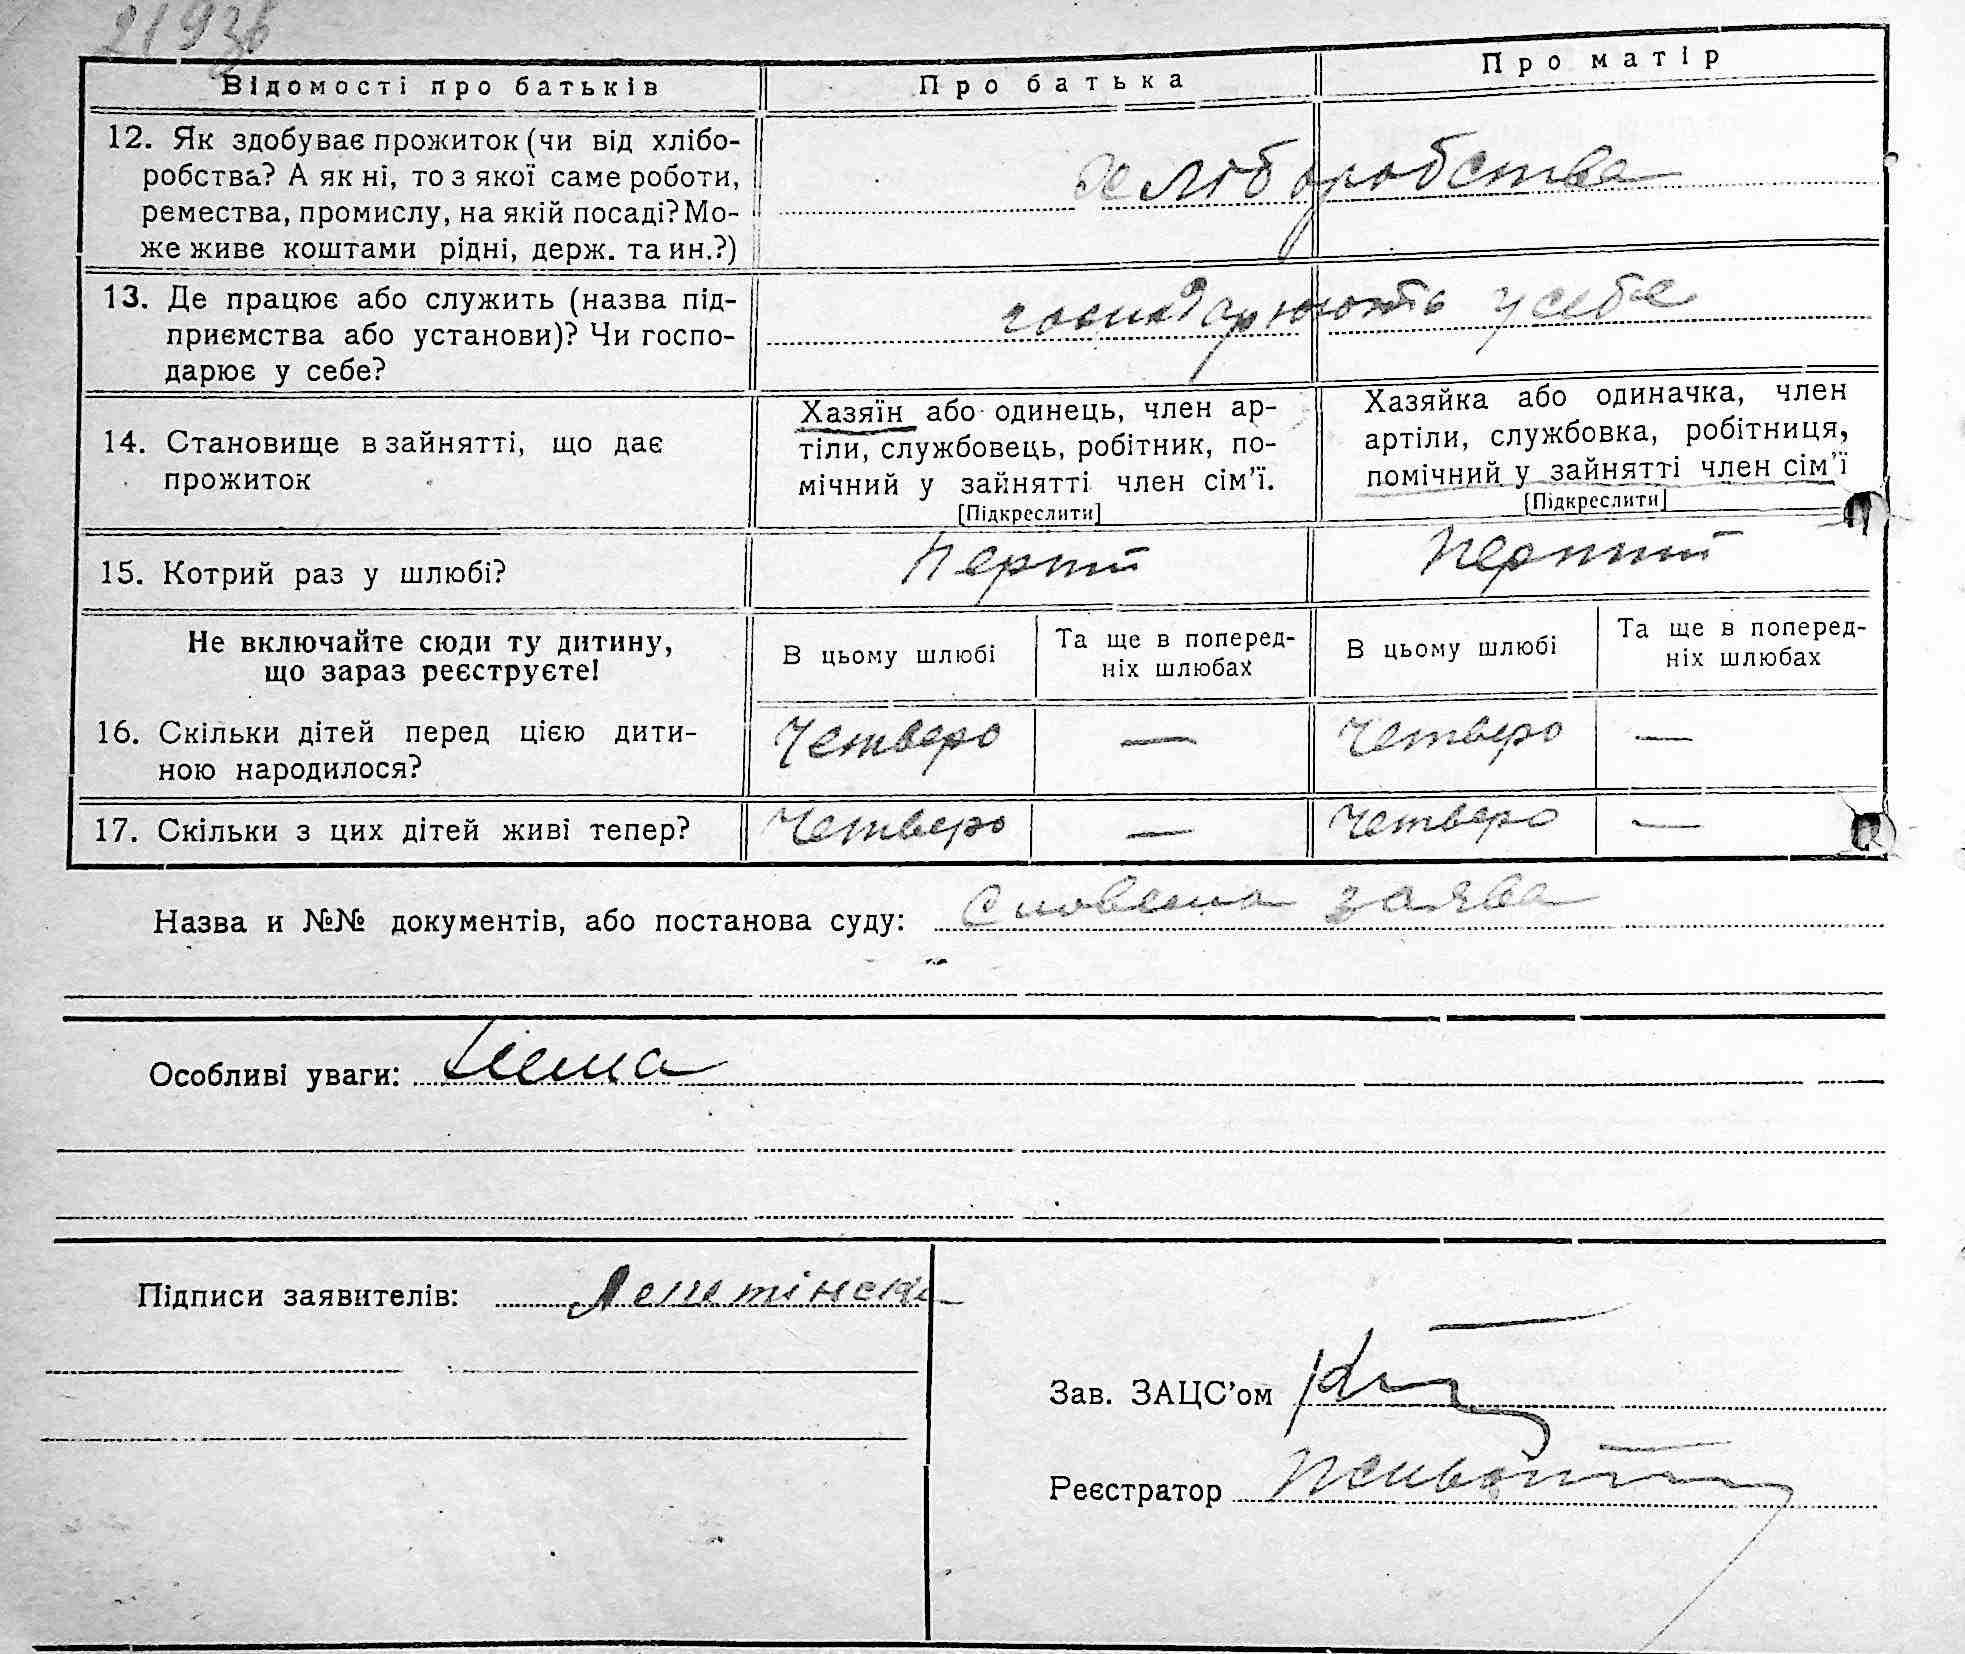 Відомості про батьків Про батька Про матір
12. Як здобуває прожиток (чи від хлібо-
робства? А як ні, то з якої саме роботи,
ремества, промислу, на якій посаді? Мо-
же живе коштами рідні, держ. та ин.?)
хліборобства
13. Де працює або служить (назва під-
приємства або установи)? Чи госпо-
дарює у себе?
господарюють у себе
14. Становище в зайнятті, що дає
прожиток
Хазяїн або одинець, член ар-
тіли, службовець, робітник, по-
мічний у зайнятті член сім'ї.
[Підкреслити]
Хазяйка або одиначка, член
артіли, службовка, робітниця,
помічний у зайнятті член сім'ї
[Підкреслити]
15. Котрий раз у шлюбі? Перший Перший
Не включайте сюди ту дитину,
що зараз реєструєте!
В цьому шлюбі
Та ще в поперед-
ніх шлюбах
В цьому шлюбі
Та ще в поперед-
ніх шлюбах
16. Скільки дітей перед цією дити-
ною народилося?
Четверо — Четверо —
17. Скільки з цих дітей живі тепер? Четверо — Четверо —
Назва и №№ документів, або постанова суду: Словесна заява
Особливі уваги: Нема
Підписи заявителів:
Зав. ЗАЦС'ом
Реєстратор